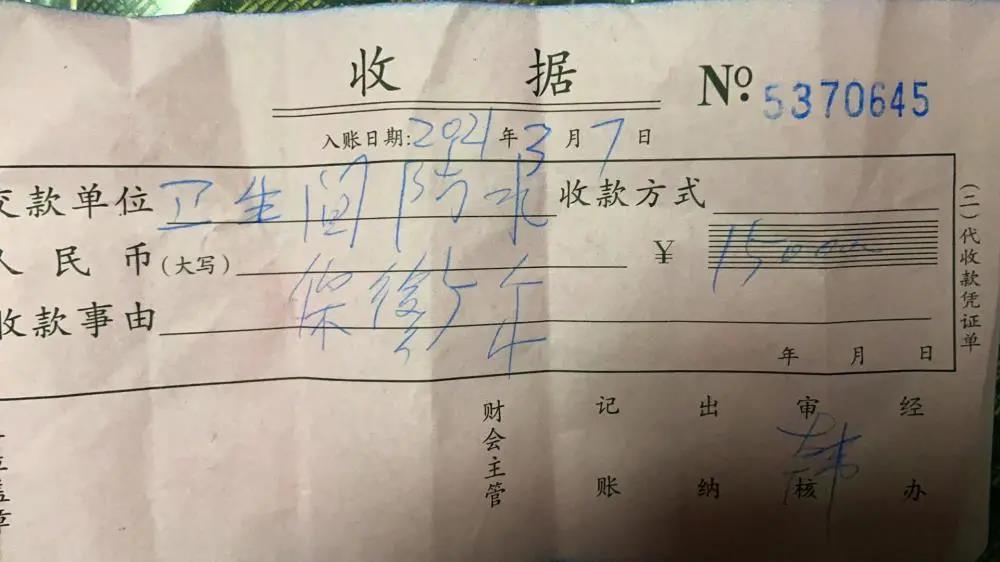 收 据 № 5370645
入账日期:2021年3月7日
交款单位 卫生间防水 收款方式
人民币(大写) ¥
收款事由 保修5年
年 月 日
(二)代收款凭证单
财会主管 记账 出纳 审核 经办